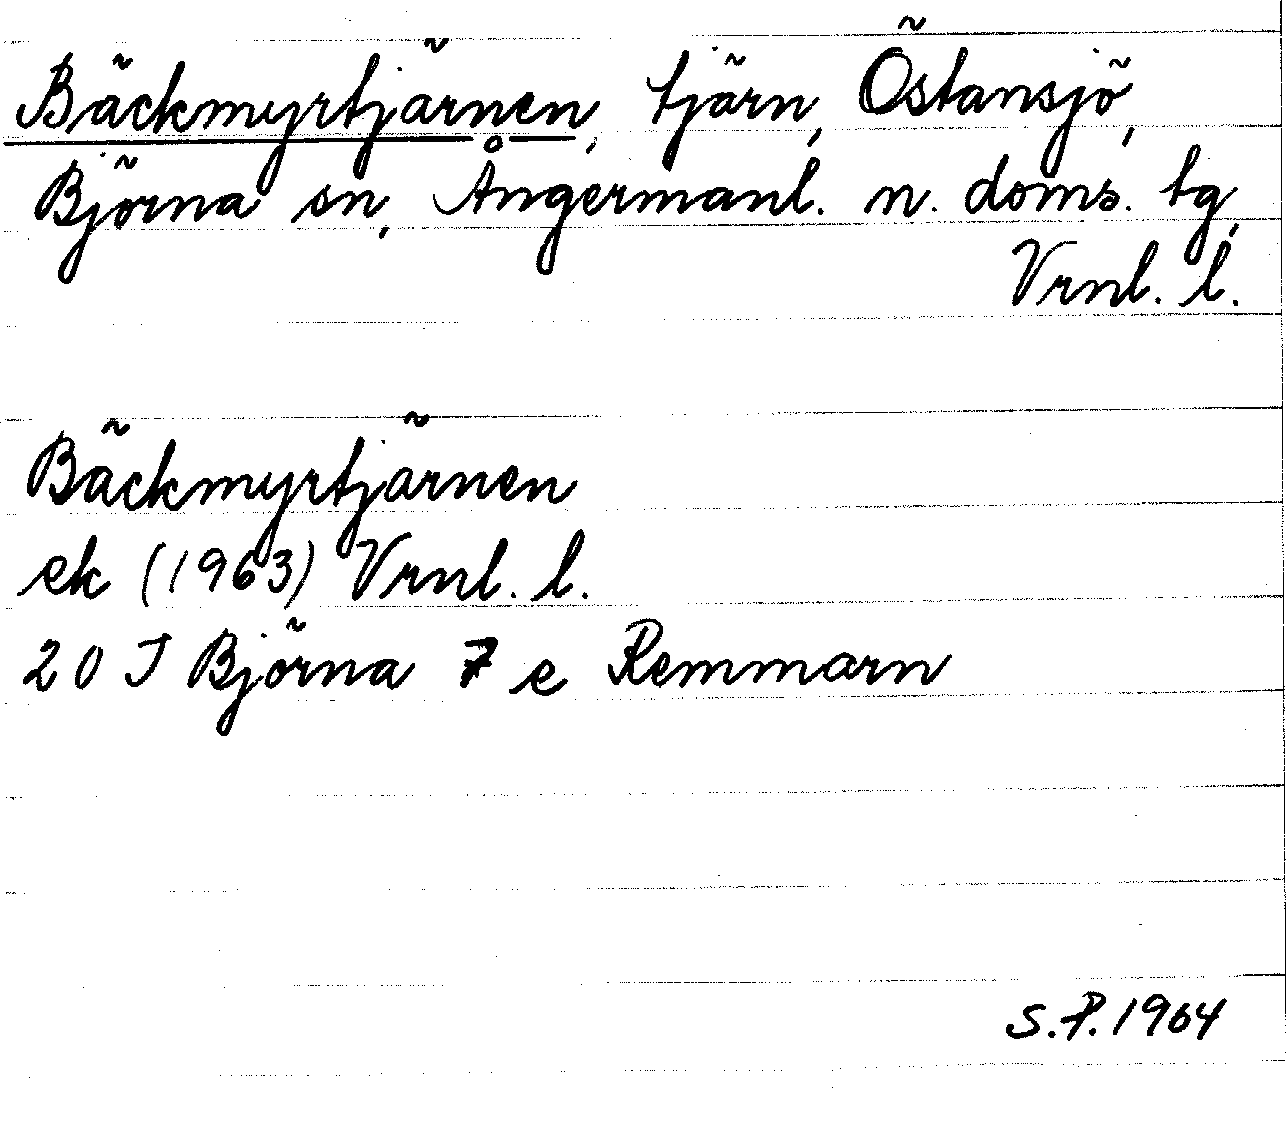 Bäckmyrtjärnen, tjärn, Östansjö,
Björna sn, Ångermanl. n. doms. tg,
Vrnl. l.
Bäckmyrtjärnen
ek (1963) Vrnl. l.
20 J Björna 7 e Remmarn
S.P. 1964